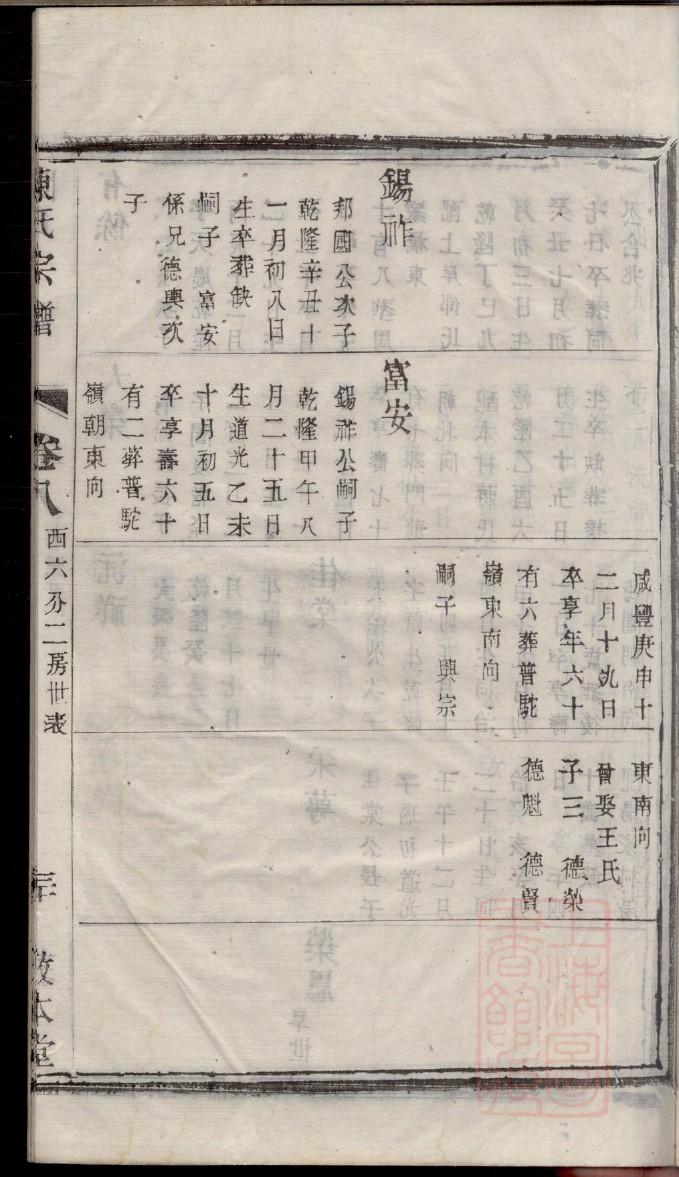 錫祚
邦國公次子
乾隆辛丑十
一月初八日
生卒葬缺
嗣子 富安
係兄德輿次
子
富安
錫祚公嗣子
乾隆甲午八
月二十五日
生道光乙未
十月初五日
卒享壽六十
有二葬普駝
嶺朝東向
咸豐庚申十
二月十九日
卒享年六十
有六葬普駝
嶺東南向
嗣子 興宗
東南向
曾娶王氏
子三 德榮
德魁 德賢
陳氏宗譜
卷八
西六分二房世表
敦本堂
上海圖書館藏